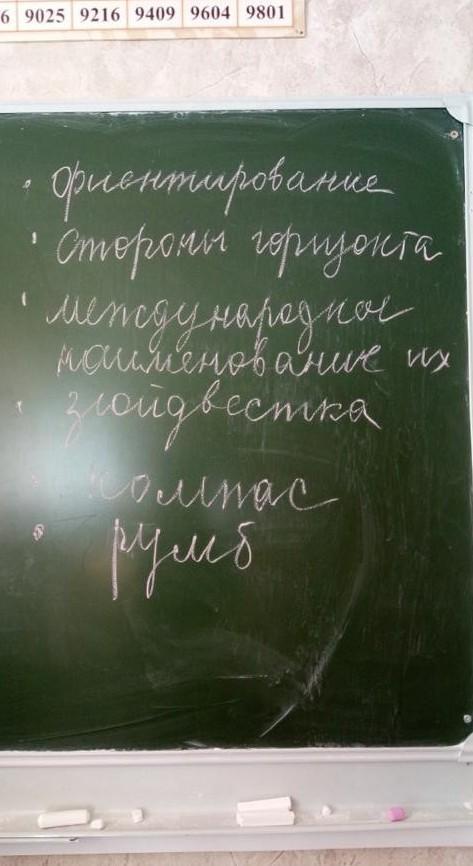 6 9025 9216 9409 9604 9801
· ориентирование
· стороны горизонта
· международное
наименование их
· зюйдвестка
· компас
· румб